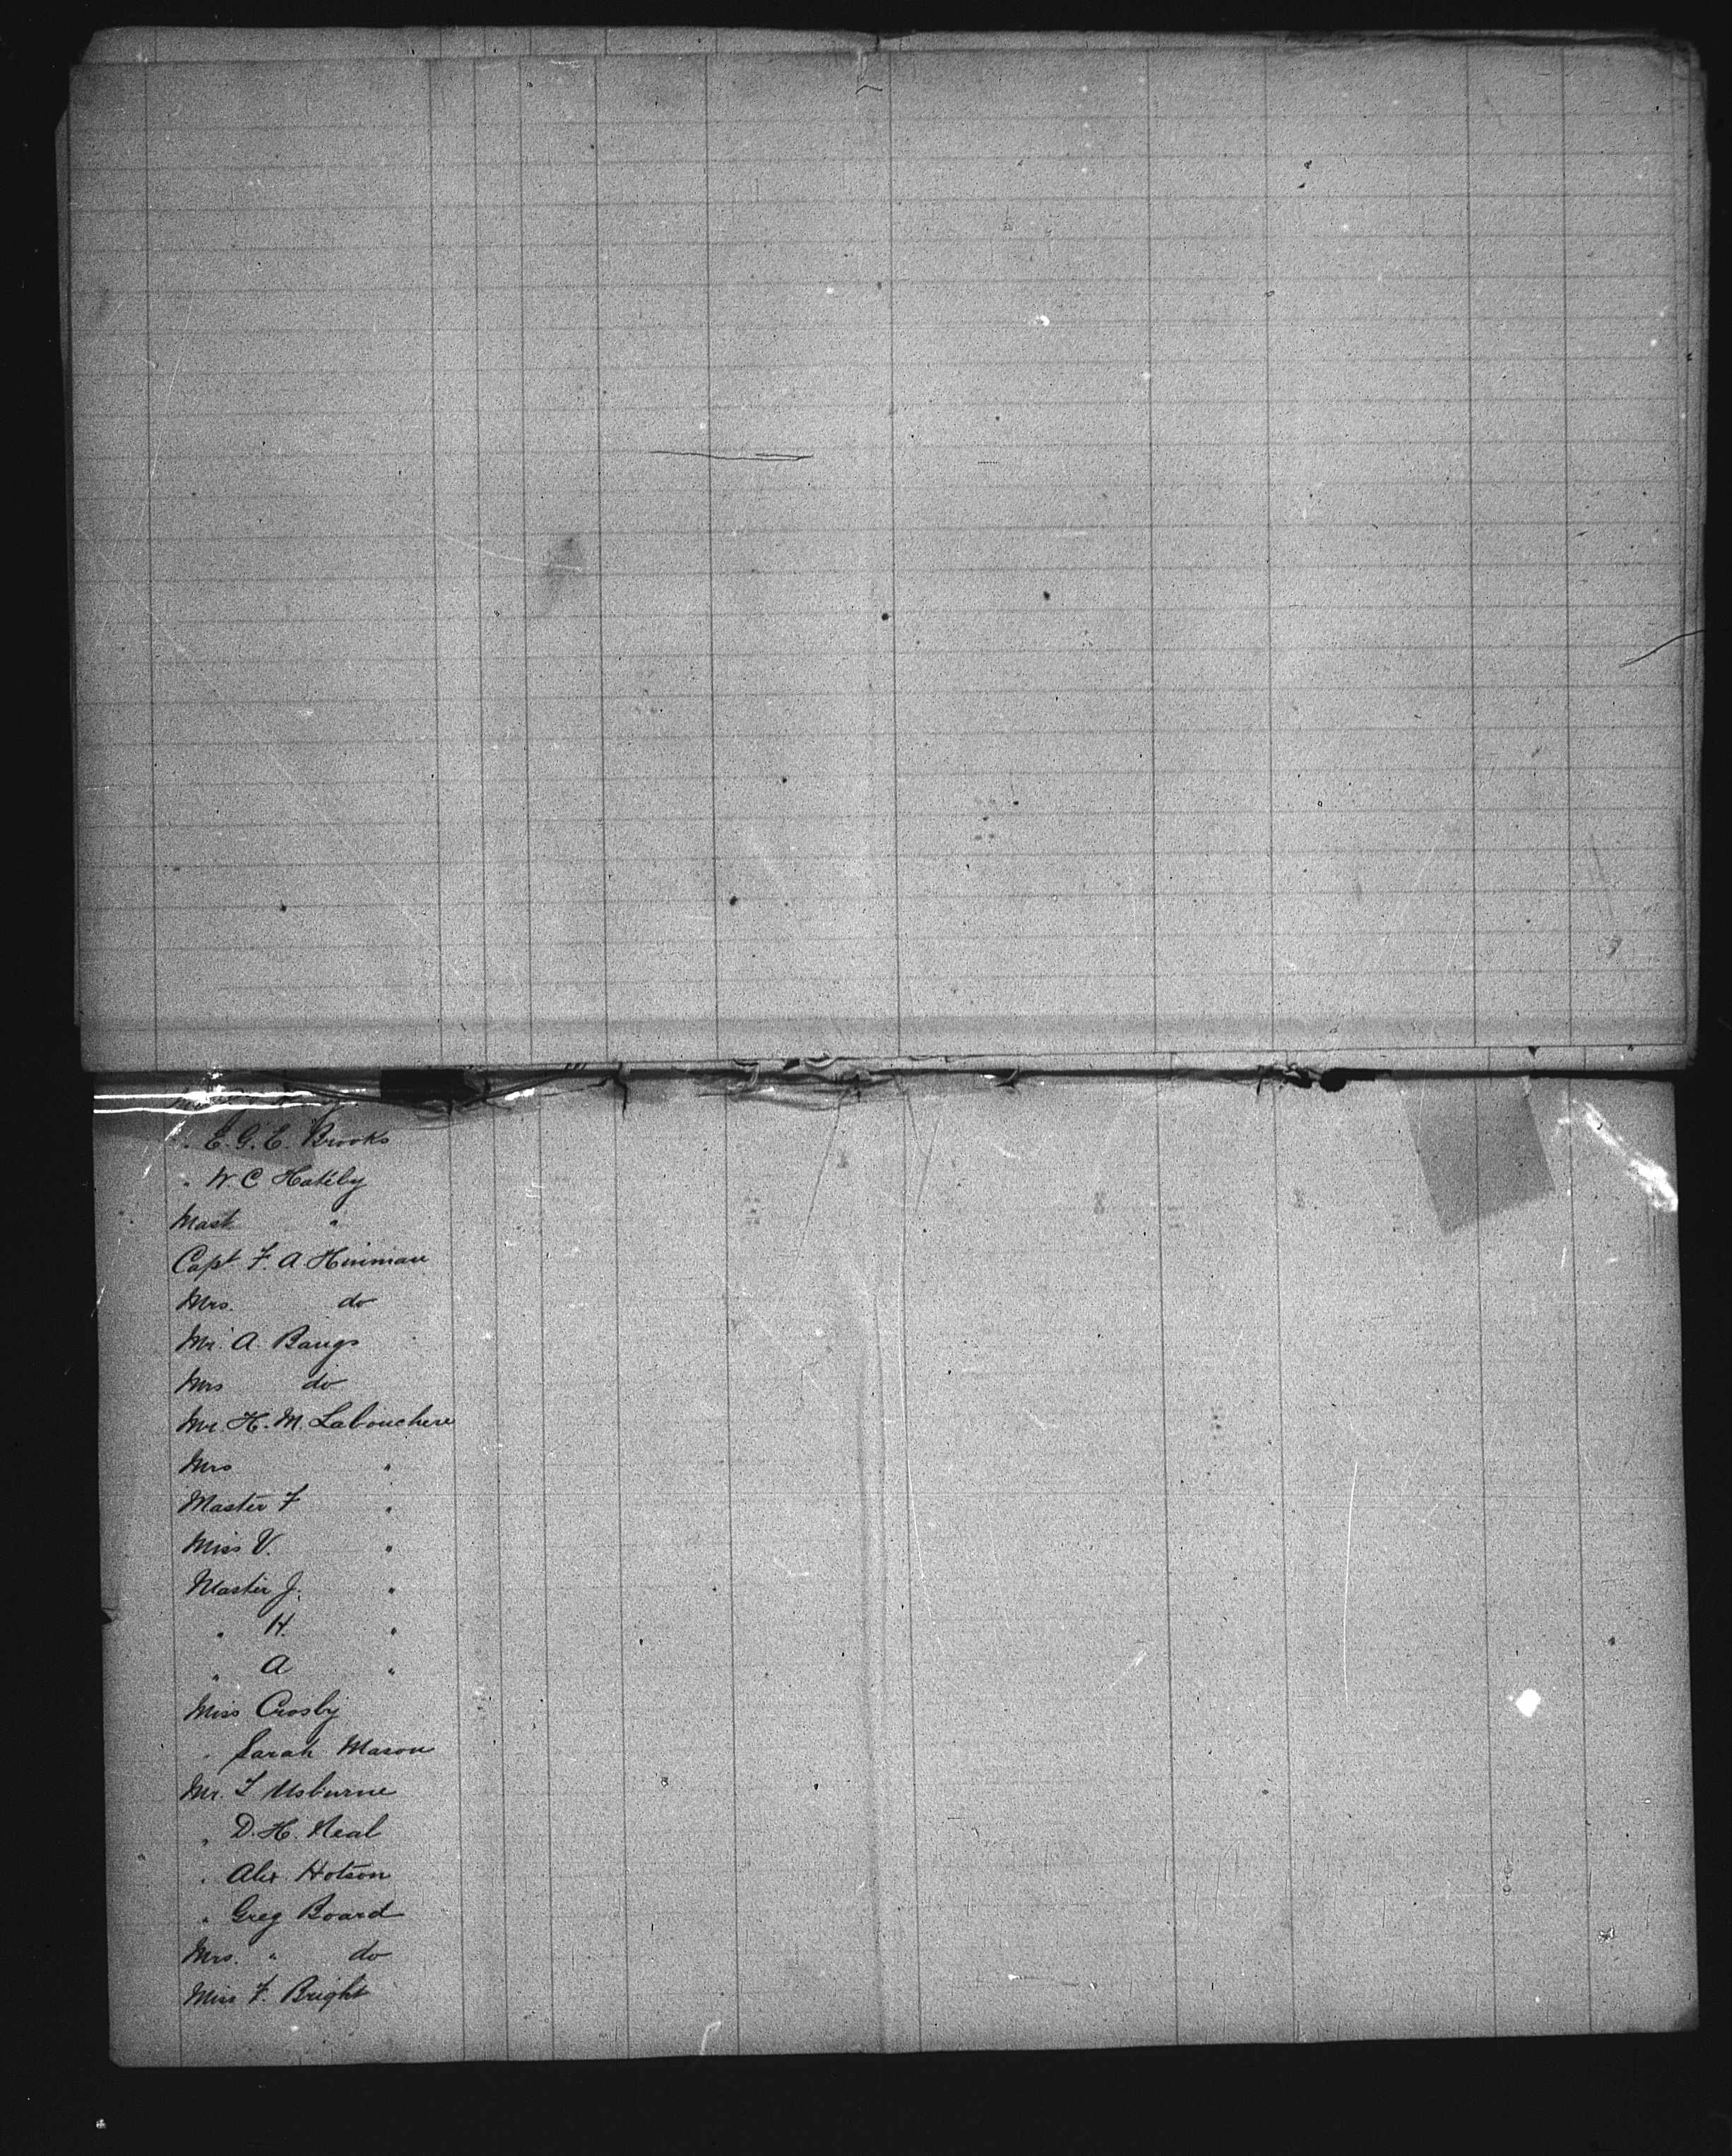 " E. G. E. Brooks
" W C Hateby
Mast "
Capt F. A. Hinman
Mrs. do
Mr. A. Bangs
Mrs do
Mr. H. M. Labouchere
Mrs "
Master F "
Miss V. "
Master J. "
" H. "
" A "
Miss Crosby
" Sarah Mason
Mr. T Usburne
" D. H. Neal
" Alex. Hotson
" Greg Board
Mrs. " do
Miss F. Bright